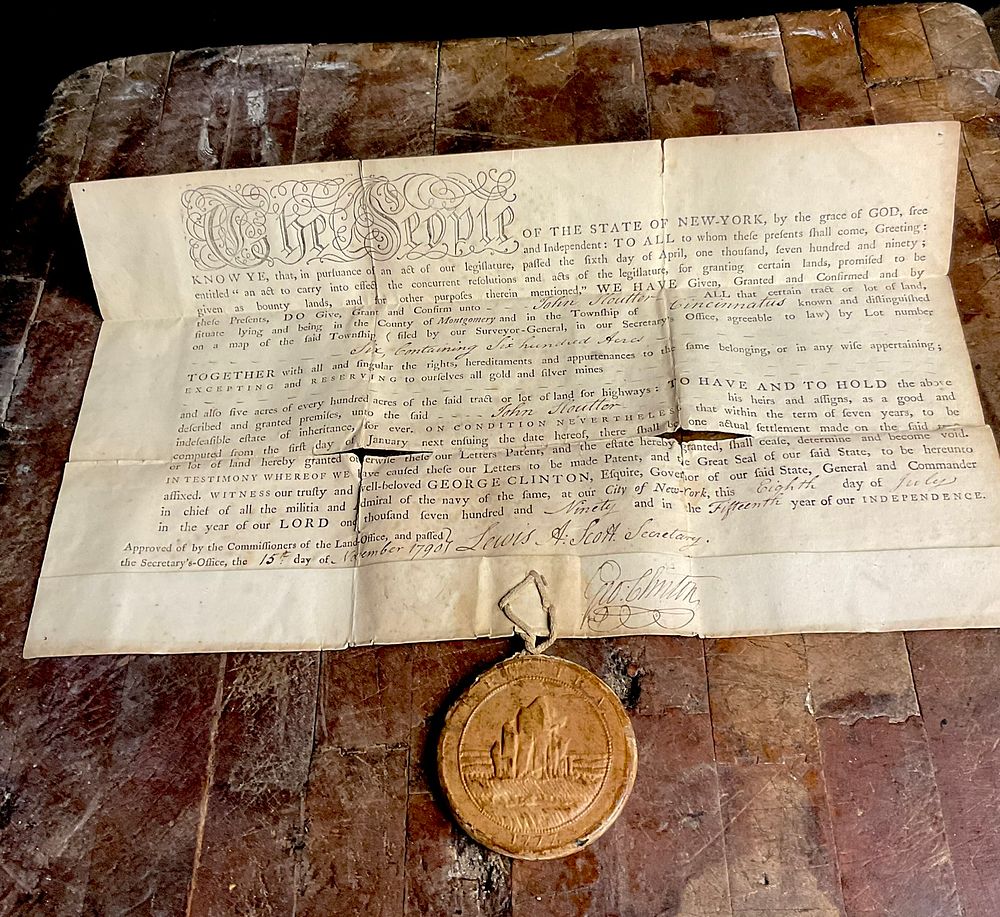 The People OF THE STATE OF NEW-YORK, by the grace of GOD, free
and Independent: TO ALL to whom theſe preſents ſhall come, Greeting:
KNOW YE, that, in purſuance of an act of our legiſlature, paſſed the ſixth day of April, one thouſand, ſeven hundred and ninety;
entitled "an act to carry into effect the concurrent reſolutions and acts of the legiſlature, for granting certain lands, promiſed to be
given as bounty lands, and for other purpoſes therein mentioned," WE HAVE Given, Granted and Confirmed and by
theſe Preſents, DO Give, Grant and Confirm unto John Stoutter ALL that certain tract or lot of land,
ſituate lying and being in the County of Montgomery and in the Townſhip of Cincinnatus known and diſtinguiſhed
on a map of the ſaid Townſhip (filed by our Surveyor-General, in our Secretary's Office, agreeable to law) by Lot number
Six, Containing Six hundred Acres
TOGETHER with all and ſingular the rights, hereditaments and appurtenances to the ſame belonging, or in any wiſe appertaining;
EXCEPTING and RESERVING to ourſelves all gold and ſilver mines
and alſo five acres of every hundred acres of the ſaid tract or lot of land for highways: TO HAVE AND TO HOLD the above
deſcribed and granted premiſes, unto the ſaid John Stoutter his heirs and aſſigns, as a good and
indefeaſible eſtate of inheritance, for ever. ON CONDITION NEVERTHELESS, that within the term of ſeven years, to be
computed from the firſt day of January next enſuing the date hereof, there ſhall be one actual ſettlement made on the ſaid
or lot of land hereby granted otherwiſe theſe our Letters Patent, and the eſtate hereby granted, ſhall ceaſe, determine and become void.
IN TESTIMONY WHEREOF WE have cauſed theſe our Letters to be made Patent, and the Great Seal of our ſaid State, to be hereunto
affixed. WITNESS our truſty and well-beloved GEORGE CLINTON, Eſquire, Governor of our ſaid State, General and Commander
in chief of all the militia and Admiral of the navy of the ſame, at our City of New-York, this Eighth day of July
in the year of our LORD one thouſand ſeven hundred and Ninety and in the Fifteenth year of our INDEPENDENCE.
Approved of by the Commiſſioners of the Land-Office, and paſſed
the Secretary's-Office, the 15th day of November 1790 Lewis A. Scott, Secretary.
Geo: Clinton